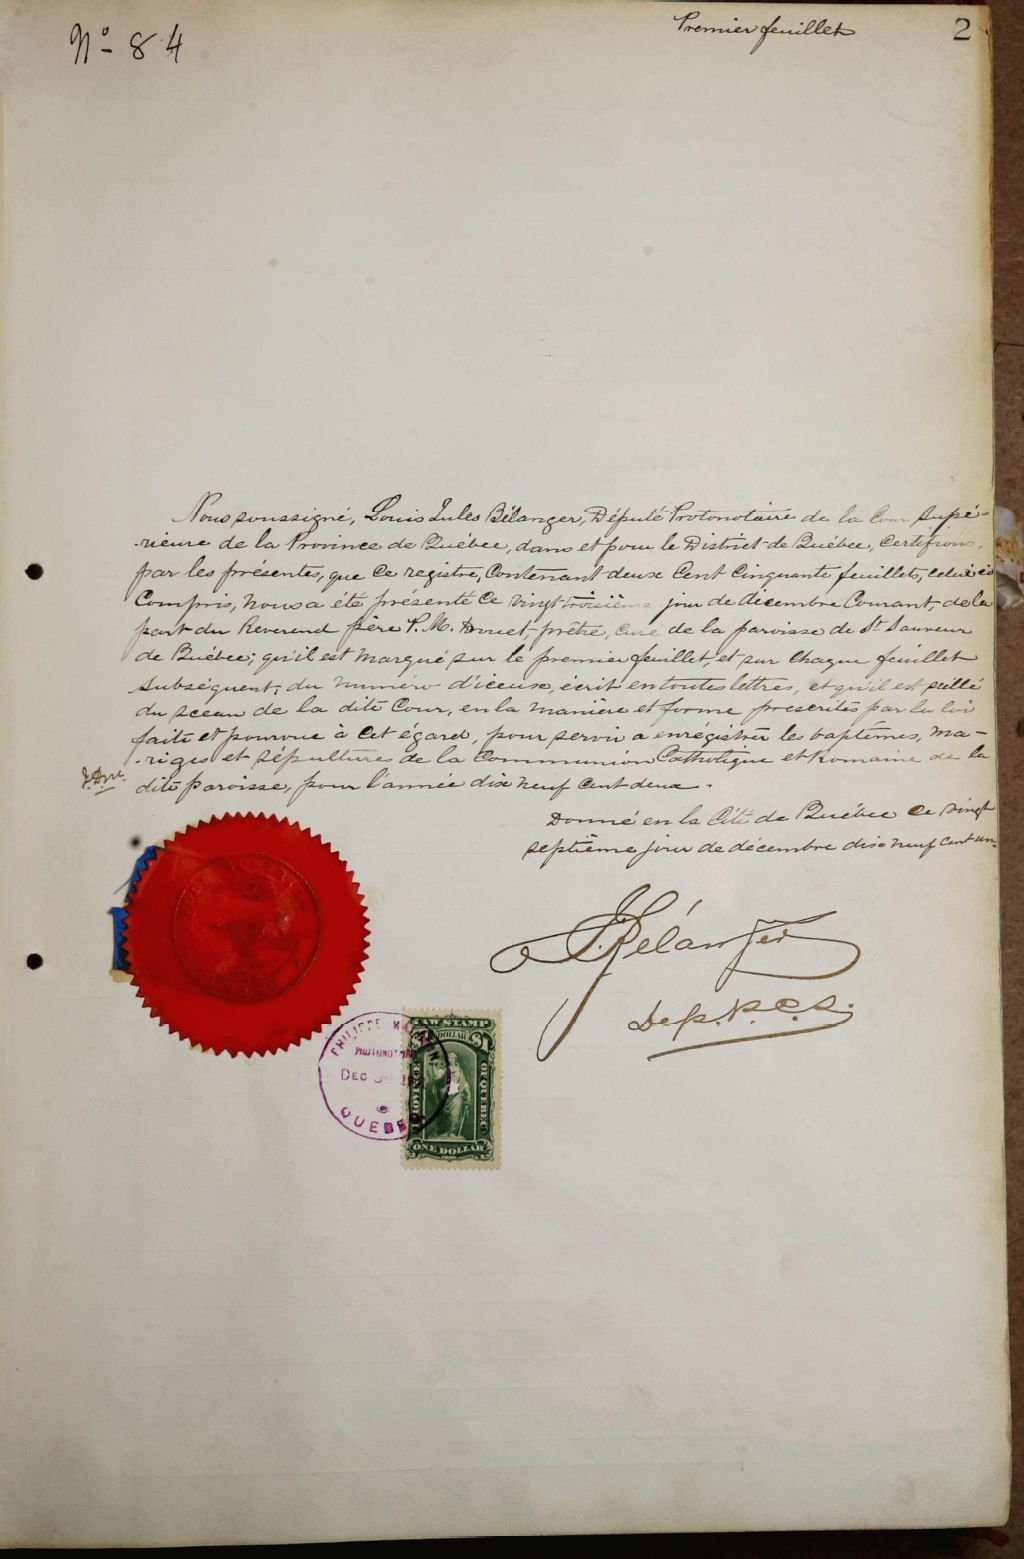 Nº 84
Premier feuillet
2
Nous soussigné, Louis Jules Bélanger, Député Protonotaire de la Cour Supé-
-rieure de la Province de Québec, dans et pour le District de Québec, certifions,
par les présentes, que ce registre, contenant deux cent cinquante feuillets, celui ci
compris, nous a été présenté ce vingt troisième jour de décembre courant, de la
part du Reverend père P. M. Drouet, prêtre, curé de la paroisse de St Sauveur
de Québec; qu'il est marqué sur le premier feuillet, et sur chaque feuillet
subséquent, du numéro d'iceux, écrit en toutes lettres, et qu'il est scellé
du sceau de la dite Cour, en la manière et forme prescrites par la loi
faite et pourvue à cet égard, pour servir a enrégistrer les baptêmes, ma-
-riages et sépultures de la Communion Catholique et Romaine de la
dite paroisse, pour l'année dix neuf cent deux.
Donné en la Cité de Québec ce vingt
septième jour de décembre dix neuf cent un.
Bélanger
Dep. P. C. S.
LAW STAMP
DOLLAR $1
PROVINCE OF QUEBEC
ONE DOLLAR
PHILIPPE
PROTONOTAIRE
DEC
QUEBEC